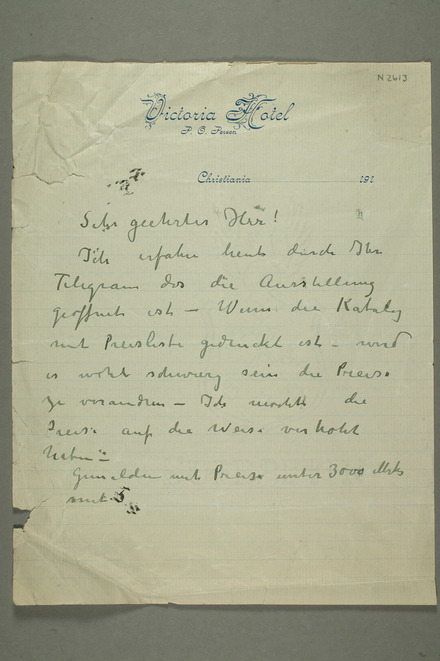 N 2613
Victoria Hotel
P. O. Persen
Christiania 191
Sehr geehrter Herr!
Ich erfahre heute durch Ihr
Telegram das die Ausstellung
geöffnet ist – Wenn die Katalog
mit Preisliste gedruckt ist – wird
es wohl schwerig sein die Preise
zu verandren – Ich mochte die
Preise auf die Weise verhoht
haben –
Gemelden mit Preise unter 3000 Mks
mit 5